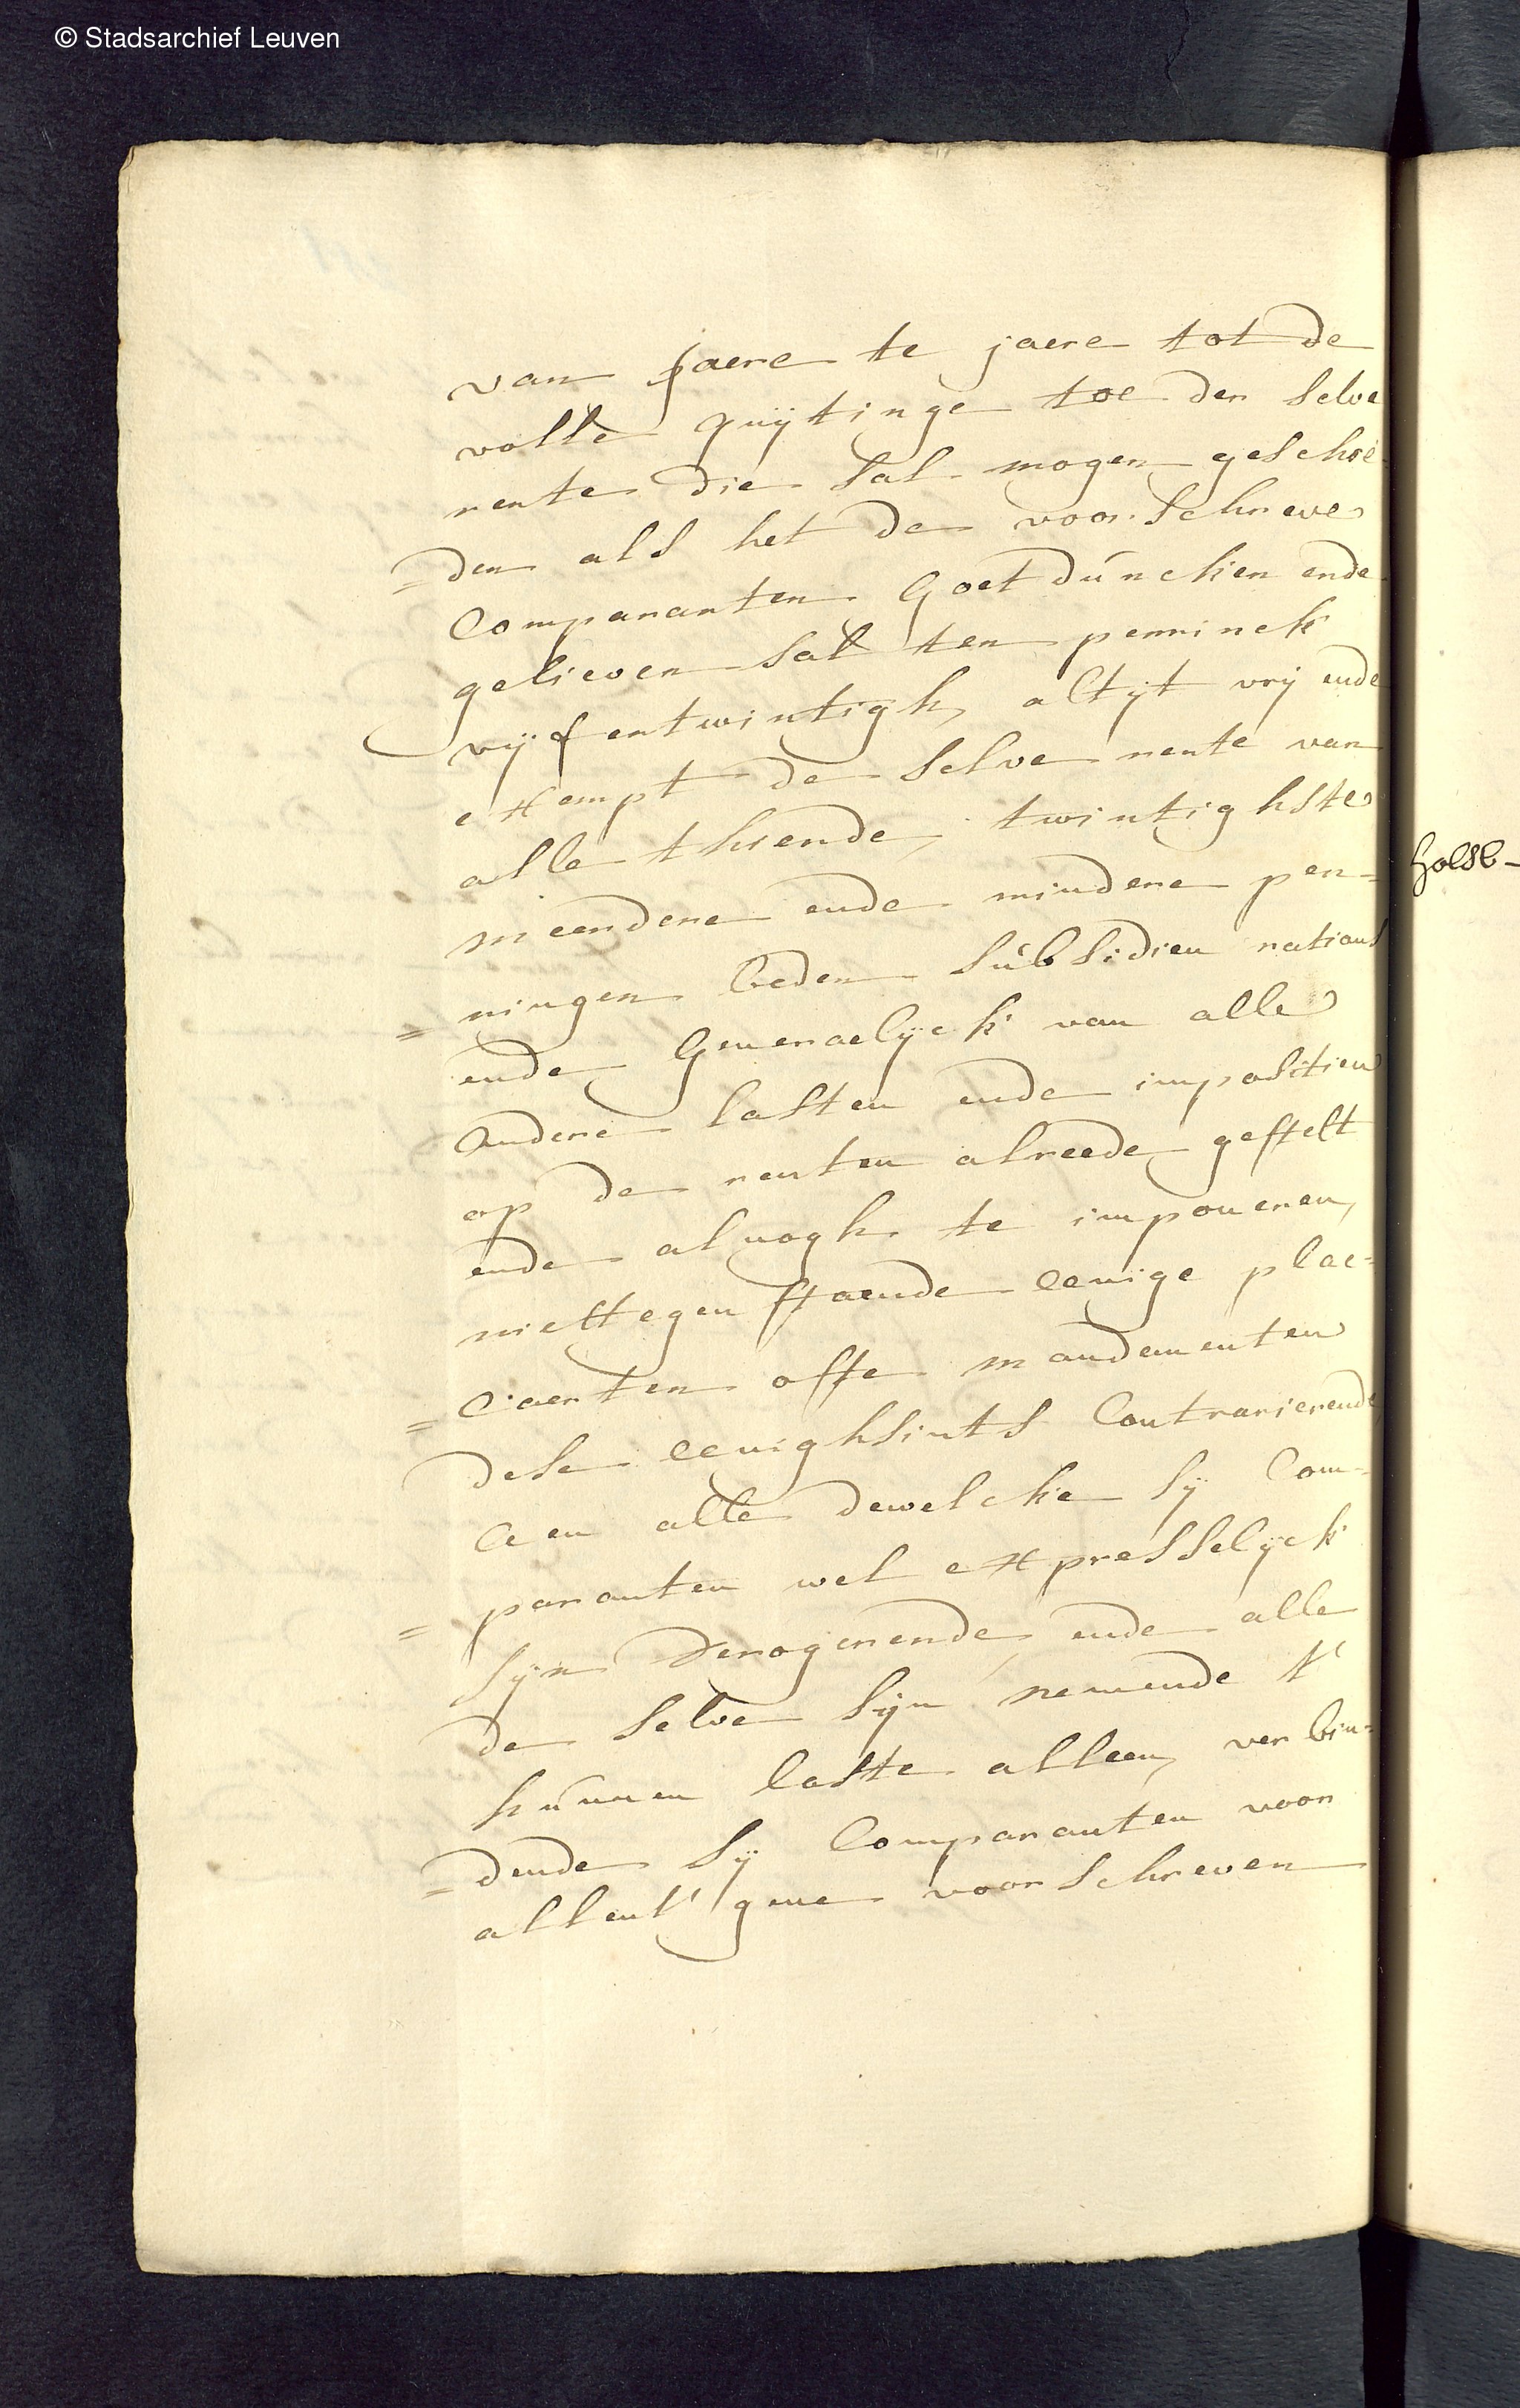 © Stadsarchief Leuven
van jaere te jaere tot de
volle quÿtinge toe der selve
rente die sal mogen geschie
=den als het de voorschreve
Comparanten Goetdúncken ende
gelieven sal ten penninck
vÿfentwintigh, altÿt vrÿ ende
exempt de selve rente van
alle thiende, twintighste
meerdere ende mindere pen=
=ningen beden súbsidien rations
ende Generaelÿck van alle
andere lasten ende impositien
op de renten alreede gestelt
ende alnogh te imponeren,
niettegenstaende eenige plac=
=caerten ofte mandementen
dese eenighsints Contrarierende,
aen alle dewelcke sÿ Com=
=paranten wel expresselÿck
sÿn derogerende, ende alle
de selve sÿn nemende t'
húnnen laste alleen, verbin=
=dende sÿ Comparanten voor
allent' gene voorschreven
holsb-